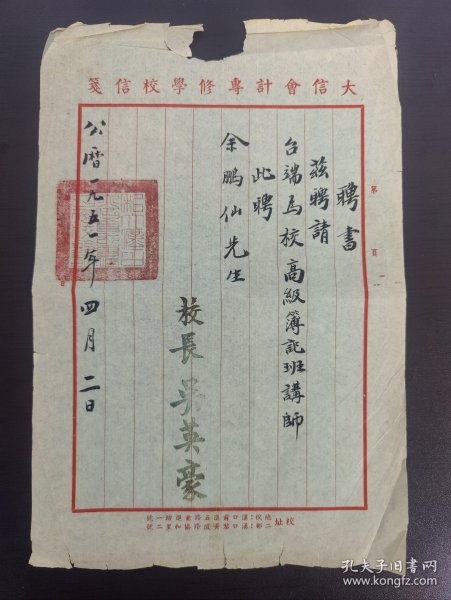 大信會計專修學校信箋
第 頁
聘書
茲聘請
台端為校高級簿記班講師
此聘
余鵬仙先生
校長吳英豪
公曆一九五一年四月二日
校址
孔夫子旧书网
www.kongfz.com